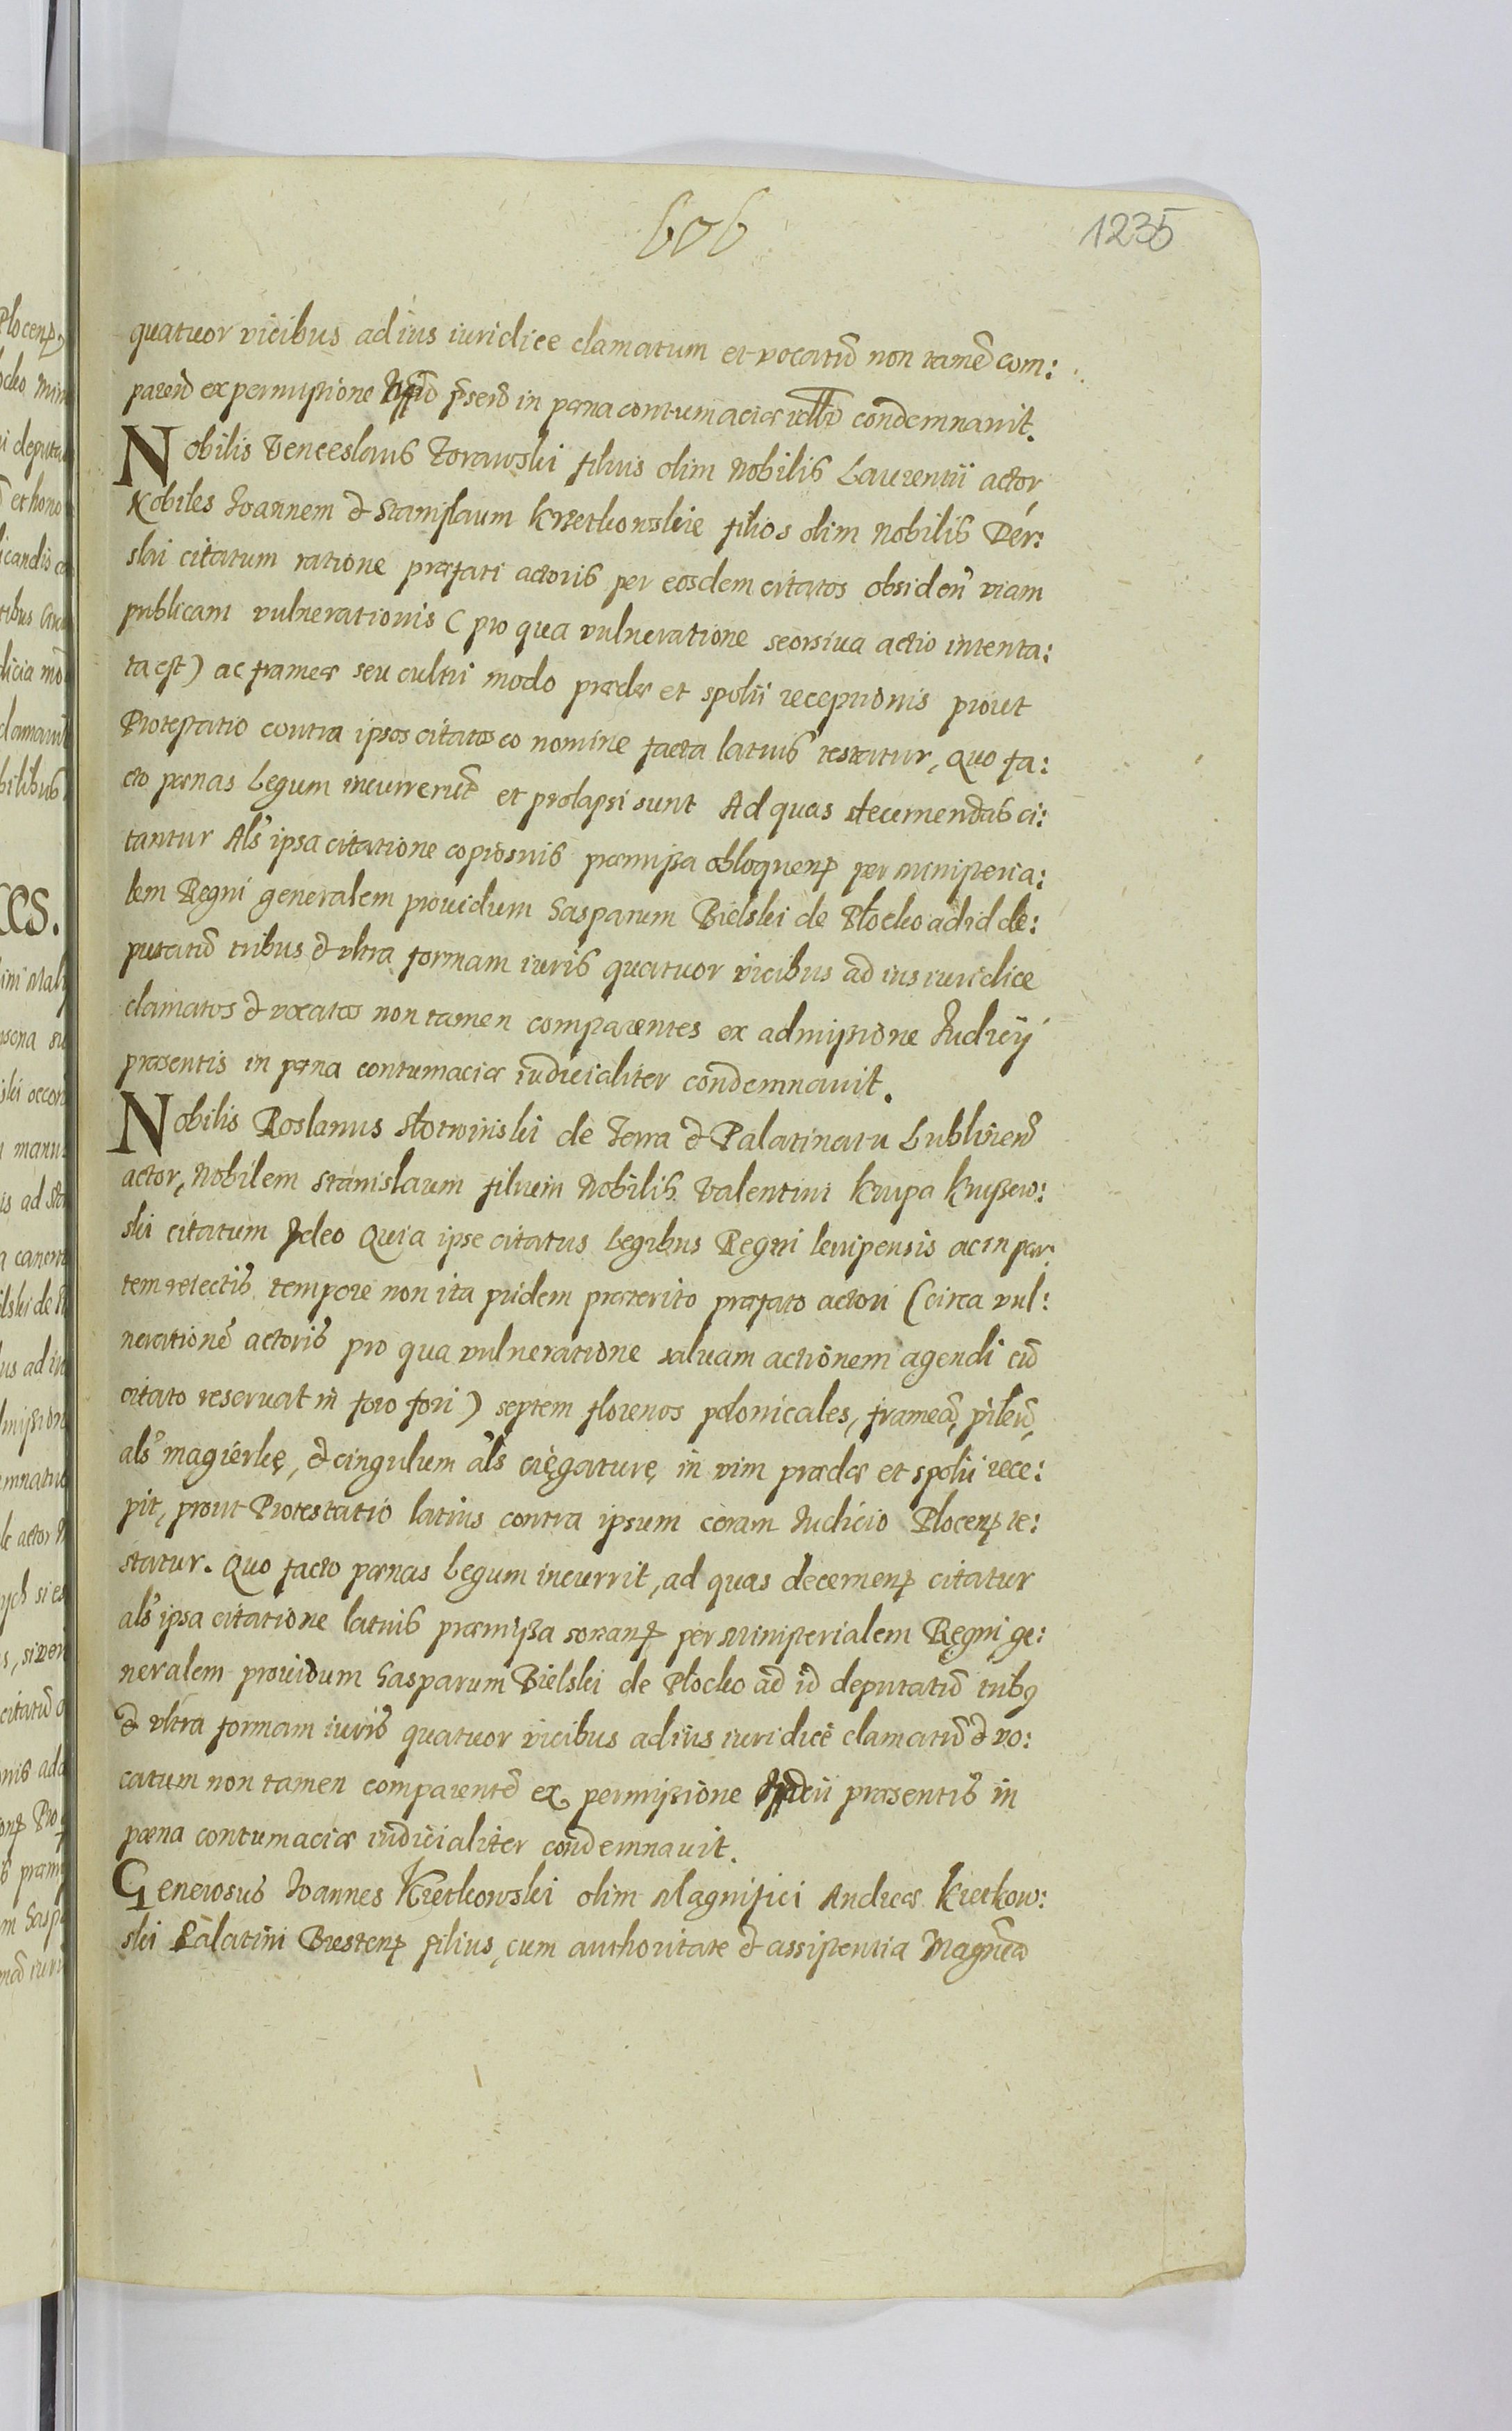 606
1235
quatuor vicibus ad ius iuridice clamatum et vocatū non tamē com:
parend ex permissione prsētis in pœna contumaciæ condemnavit.
Nobilis Venceslaus Zorawski filius olim Nobilis Laurentii actor
Nobiles Joannem & Stanislaum Krzetkowskie filios olim Nobilis Pér:
slai citatum ratione præfati actoris per eosdem citatos obsiden viam
publicam vulnerationis (pro qua vulneratione seorsiva actio intenta:
ta est) ac frameæ seu cultri modo prædæ et spolii receptionis prout
Protestatio contra ipsos citatos eo nomine facta latius testatur, Quo fa:
cto pœnas Legum incurrerūt et prolapsi sunt Ad quas decernendas ci:
tantur Als ipsa citatione copiosius præmissa obloquen per ministeria:
lem Regni generalem providum Gasparum Bielski de Płocko ad id de:
putatū tribus & ultra formam iuris quatuor vicibus ad ius iuridice
clamatos & vocatos non tamen comparentes ex admissione Judicij
præsentis in pœna contumaciæ iudicialiter condemnavit.
Nobilis Roslanus Słotwiński de Terra & Palatinatu Lublinen
actor, Nobilem Stanislaum filium Nobilis Valentini Krupa Krupsew:
ski citatum Ideo Quia ipse citatus Legibus Regni levipensis ac in par
tem reiectis tempore non ita pridem præterito præfato actori (circa vul:
nerationē actoris pro qua vulneratione salvam actionem agendi cū
citato reservat in foro fori) septem florenos polonicales, frameā, pileū,
als magiérkę, & cingulum als cięgaturę in vim prædæ et spolii rece:
pit, prout Protestatio latius contra ipsum coram Judicio Plocen te:
statur. Quo facto pœnas Legum incurrit, ad quas decernen citatur
als ipsa citatione latius præmissa sonan per Ministerialem Regni ge:
neralem providum Gasparum Bielski de Płocko ad id deputatū tribus
& ultra formam iuris quatuor vicibus ad ius iuridice clamatū & vo:
catum non tamen comparentē ex permissione Judicii præsentis in
pœna contumaciæ iudicialiter condemnavit.
Generosus Joannes Kretkowski olim Magnifici Andreæ Kretkow:
ski Palatini Bresten filius, cum authoritate & assistentia